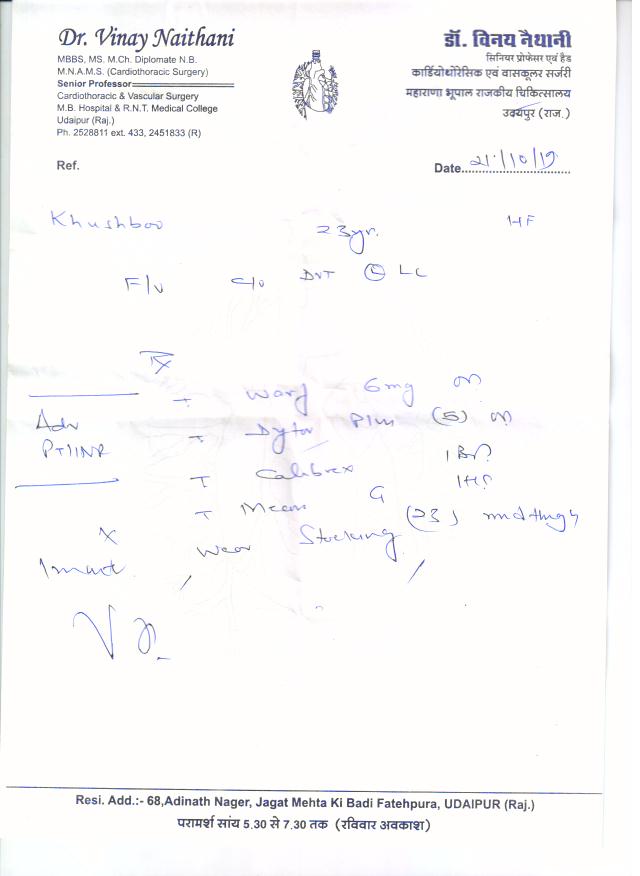 Dr. Vinay Naithani
MBBS, MS. M.Ch. Diplomate N.B.
M.N.A.M.S. (Cardiothoracic Surgery)
Senior Professor
Cardiothoracic & Vascular Surgery
M.B. Hospital & R.N.T. Medical College
Udaipur (Raj.)
Ph. 2528811 ext. 433, 2451833 (R)
डॉ. विनय नैथानी
सिनियर प्रोफेसर एवं हैड
कार्डियोथोरेसिक एवं वासकूलर सर्जरी
महाराणा भूपाल राजकीय चिकित्सालय
उदयपुर (राज.)
Ref.
Date 21/10/19
Khushboo 23yr. HF
F/U c/o DVT (L) LL
Rx
T Warf 6mg on
Adv T Dytor Plus (5) on
PT/INR
T Calibrex 1
T
X Wear Stocking (23) mid thigh
Resi. Add.:- 68,Adinath Nager, Jagat Mehta Ki Badi Fatehpura, UDAIPUR (Raj.)
परामर्श सांय 5.30 से 7.30 तक (रविवार अवकाश)